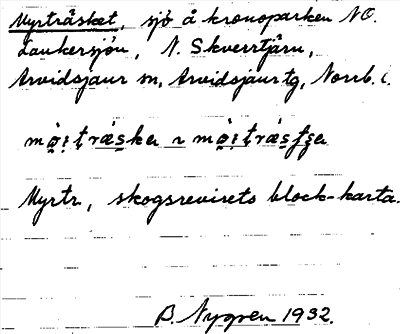 Myrträsket, sjö å kronoparken NO.
Laukersjön, N. Skverrtjärn,
Arvidsjaur sn, Arvidsjaur tg, Norrb. l.
Myrtr., skogsrevisets block-karta.
B. Nygren 1932.